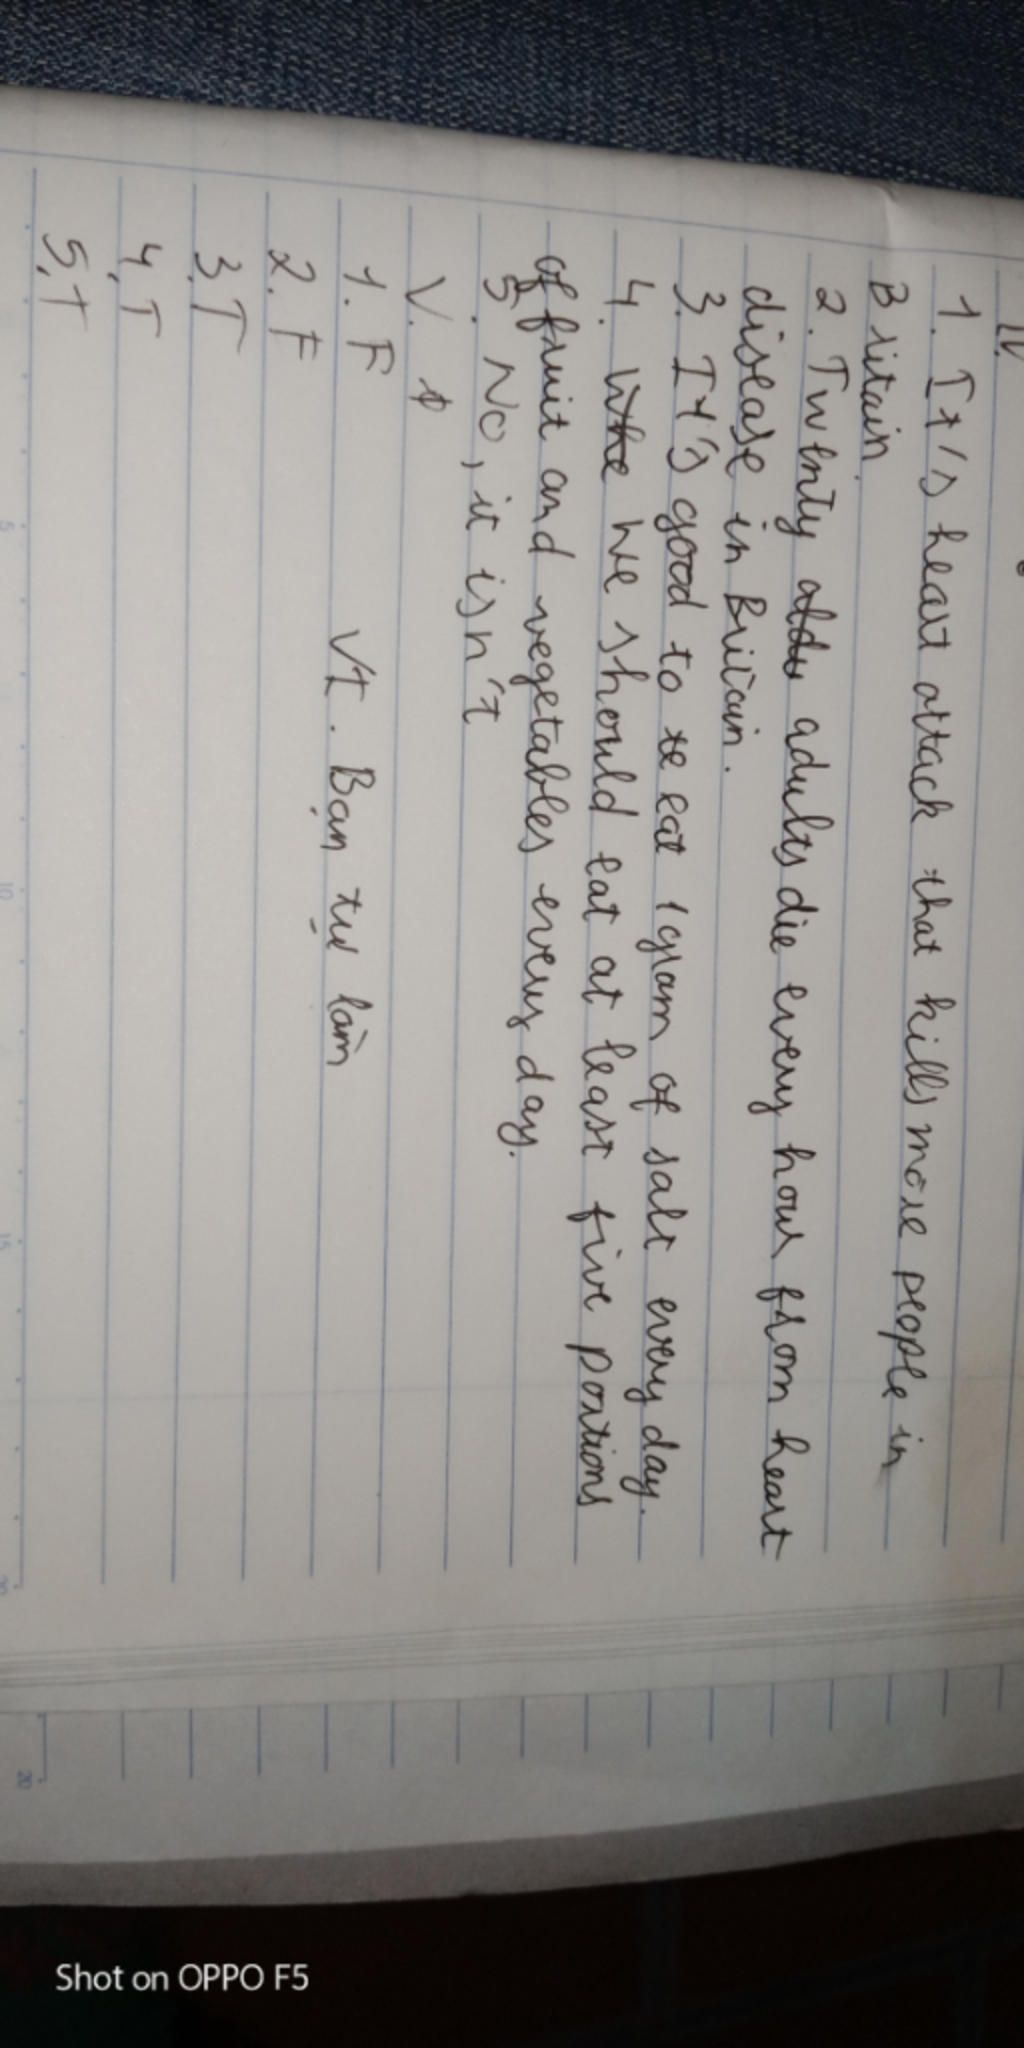 IV.
1. It's heart attack that kills more people in
Britain
2. Twenty adults die every hour from heart
disease in Britain.
3. It's good to eat 1 gram of salt every day.
4. We should eat at least five portions
of fruit and vegetables every day.
5. No, it isn't
V.
1. F VI. Bạn tự làm
2. F
3. T
4. T
5. T
5 10 15 20
20
Shot on OPPO F5